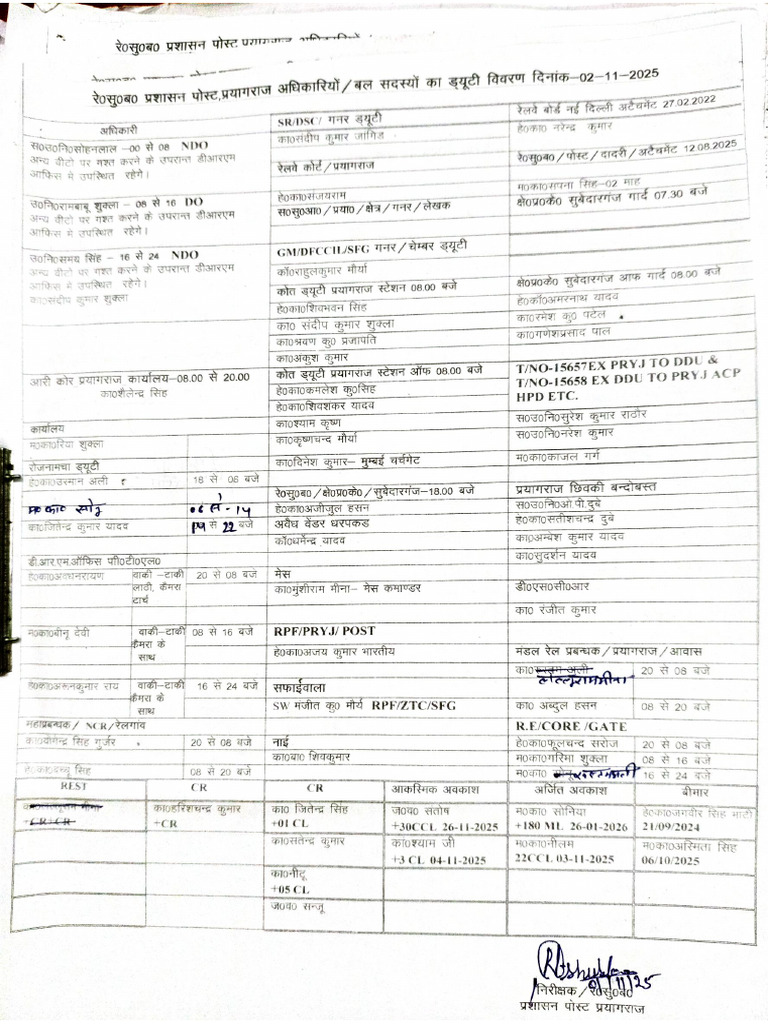 रे0सु0ब0 प्रशासन पोस्ट
रे0सु0ब0 प्रशासन पोस्ट,प्रयागराज अधिकारियों/बल सदस्यों का ड्यूटी विवरण दिनांक-02-11-2025
अधिकारी
स0उ0नि0सोहनलाल -00 से 08 NDO
अन्य वीटो पर गश्त करने के उपरान्त डीआरएम
आफिस मे उपस्थित रहेगे।
उ0नि0रामबाबू शुक्ला - 08 से 16 DO
अन्य वीटो पर गश्त करने के उपरान्त डीआरएम
आफिस मे उपस्थित रहेगे।
उ0नि0समय सिंह - 16 से 24 NDO
अन्य वीटो पर गश्त करने के उपरान्त डीआरएम
आफिस मे उपस्थित रहेगे।
का0संदीप कुमार शुक्ला
आरी कोर प्रयागराज कार्यालय-08.00 से 20.00
का0शैलेन्द्र सिंह
कार्यालय
म0का0रिया शुक्ला
रोजनामचा ड्यूटी
हे0का0उस्मान अली 18 से 08 बजे
म0का0 सोनू 06 से - 14
का0जितेन्द्र कुमार यादव 14 से 22 बजे
डी.आर.एम.ऑफिस पी0टी0एल0
हे0का0अवधनारायण वाकी-टाकी लाठी, कैमरा टार्च 20 से 08 बजे
म0का0बीनू देवी वाकी-टाकी कैमरा के साथ 08 से 16 बजे
हे0का0अरूनकुमार राय वाकी-टाकी कैमरा के साथ 16 से 24 बजे
महाप्रबन्धक/ NCR/रेलगांव
का0योगेन्द्र सिंह गुर्जर 20 से 08 बजे
हे0का0बच्चू सिंह 08 से 20 बजे
SR/DSC/ गनर ड्यूटी
का0संदीप कुमार जागिड
रेलवे कोर्ट/प्रयागराज
हे0का0संजयराम
स0सु0आ0/प्रया0/क्षेत्र/गनर/लेखक
GM/DFCCIL/SFG गनर/चेम्बर ड्यूटी
कॉ0राहुलकुमार मौर्या
कोत ड्यूटी प्रयागराज स्टेशन 08.00 बजे
हे0का0शिवभवन सिंह
का0 संदीप कुमार शुक्ला
का0श्रवण कु0 प्रजापति
का0अंकुश कुमार
कोत ड्यूटी प्रयागराज स्टेशन ऑफ 08.00 बजे
हे0का0कमलेश कु0सिंह
हे0का0शिवशंकर यादव
का0श्याम कृष्ण
का0कृष्णचन्द मौर्या
का0दिनेश कुमार- मुम्बई चर्चगेट
रे0सु0ब0/क्षे0प्र0के0/सुबेदारगंज-18.00 बजे
हे0का0अजीजुल हसन
अवैध वेंडर धरपकड
कॉ0धर्मेन्द्र यादव
मेस
का0मुंशीराम मीना- मेस कमाण्डर
RPF/PRYJ/ POST
हे0का0अजय कुमार भारतीय
सफाईवाला
SW मंजीत कु0 मौर्य RPF/ZTC/SFG
नाई
का0बा0 शिवकुमार
रेलवे बोर्ड नई दिल्ली अटैचमेंट 27.02.2022
हे0का0 नरेन्द्र कुमार
रे0सु0ब0/पोस्ट/दादरी/अटैचमेंट 12.08.2025
म0का0सपना सिंह-02 माह
क्षे0प्र0के0 सुबेदारगंज गार्द 07.30 बजे
क्षे0प्र0के0 सुबेदारगंज आफ गार्द 08.00 बजे
हे0कॉ0अमरनाथ यादव
का0रमेश कु0 पटेल
का0गणेशप्रसाद पाल
T/NO-15657EX PRYJ TO DDU &
T/NO-15658 EX DDU TO PRYJ ACP
HPD ETC.
स0उ0नि0सुरेश कुमार राठौर
स0उ0नि0नरेश कुमार
म0का0काजल गर्ग
प्रयागराज छिवकी बन्दोबस्त
स0उ0नि0ओ.पी.दुबे
हे0का0सतीशचन्द्र दुबे
का0अम्बेश कुमार यादव
का0सुदर्शन यादव
डी0एस0सी0आर
का0 रंजीत कुमार
मंडल रेल प्रबन्धक/प्रयागराज/आवास
का0 रुस्तम अली लल्लूराममीना 20 से 08 बजे
का0 अब्दुल हसन 08 से 20 बजे
R.E/CORE /GATE
हे0का0फूलचन्द सरोज 20 से 08 बजे
म0का0गरिमा शुक्ला 08 से 16 बजे
म0का0 16 से 24 बजे
REST CR CR आकस्मिक अवकाश अर्जित अवकाश बीमार
+CR+CR
का0हरिशचन्द्र कुमार
+CR
का0 जितेन्द्र सिंह
+01 CL
ज0व0 संतोष
+30CCL 26-11-2025
म0का0 सोनिया
+180 ML 26-01-2026
हे0का0जगवीर सिंह भाटी
21/09/2024
का0सतेन्द्र कुमार
का0श्याम जी
+3 CL 04-11-2025
म0का0नीलम
22CCL 03-11-2025
म0का0अस्मिता सिंह
06/10/2025
का0नीटू
+05 CL
ज0व0 सन्जू
निरीक्षक/रे0सु0ब0
प्रशासन पोस्ट प्रयागराज